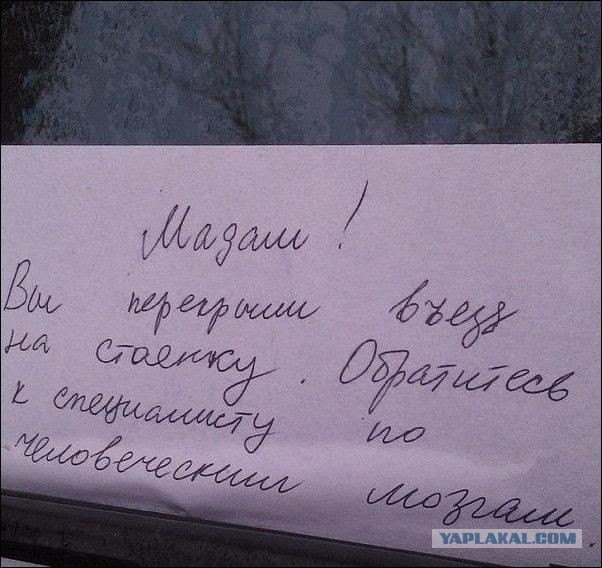 Мадам!
Вы перекрыли въезд
на стоянку. Обратитесь
к специалисту по
человеческим мозгам.
YAPLAKAL.COM